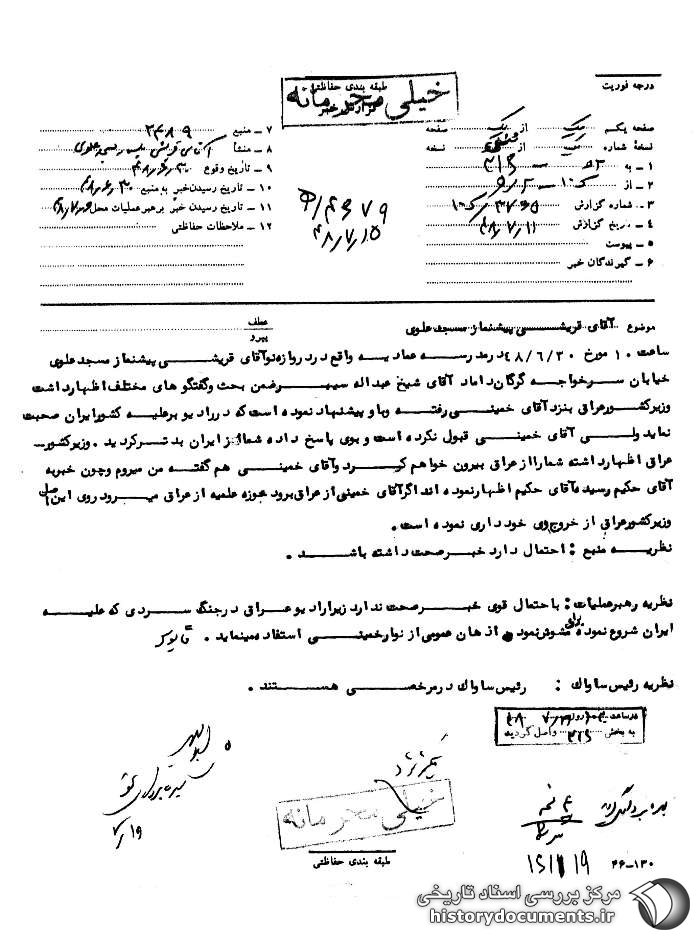 طبقه بندی حفاظتی
خیلی محرمانه
گزارش خبر
درجه فوریت
صفحه یکم یک از یک صفحه
نسخهٔ شماره یک از نسخه
۱ ـ به ۳۱۶
۲ ـ از
۳ ـ شماره گزارش
۴ ـ تاریخ گزارش ۴۸/۷/۱۱
۵ ـ پیوست
۶ ـ گیرندگان خبر
۷ ـ منبع ۲۴۸۹
۸ ـ منشأ
۹ ـ تاریخ وقوع ۴۸/۶/۳۰
۱۰ ـ تاریخ رسیدن خبر به منبع ۴۸/۶/۳۰
۱۱ ـ تاریخ رسیدن خبر برهبر عملیات محل
۱۲ ـ ملاحظات حفاظتی
۴۸/۷/۱۵
موضوع آقای قریشی پیشنماز مسجد علوی
عطف
پیرو
ساعت ۱۰ مورخ ۴۸/۶/۳۰ درمدرسه عمادیه واقع در دروازه نو آقای قریشی پیشنماز مسجد علوی
خیابان سرخواجه گرگان داماد آقای شیخ عبداله سپهر ضمن بحث وگفتگو های مختلف اظهار داشت
وزیرکشور عراق بنزد آقای خمینی رفته وباو پیشنهاد نموده است که در رادیو برعلیه کشور ایران صحبت
نماید ولی آقای خمینی قبول نکرده است و بوی پاسخ داده شما از ایران بدتر کردید . وزیرکشور
عراق اظهار داشته شما را از عراق بیرون خواهم کرد وآقای خمینی هم گفته من میروم وچون خبر به
آقای حکیم رسیده آقای حکیم اظهار نموده اند اگر آقای خمینی از عراق برود حوزه علمیه از عراق میرود روی این اصل
وزیرکشور عراق از خروج وی خود داری نموده است .
نظریه منبع : احتمال دارد خبر صحت داشته باشد .
نظریه رهبر عملیات : با احتمال قوی خبر صحت ندارد زیرا رادیو عراق در جنگ سردی که علیه
ایران شروع نموده برای مشوش نمودن اذهان عمومی از نوار خمینی استفاده مینماید .
نظریه رئیس ساواک : رئیس ساواک در مرخصی هستند .
در ساعت روز
به بخش ۳۱۶ واصل گردید
خیلی محرمانه
طبقه بندی حفاظتی
۷/۱۹
۴۶-۱۳۰
مرکز بررسی اسناد تاریخی
historydocuments.ir